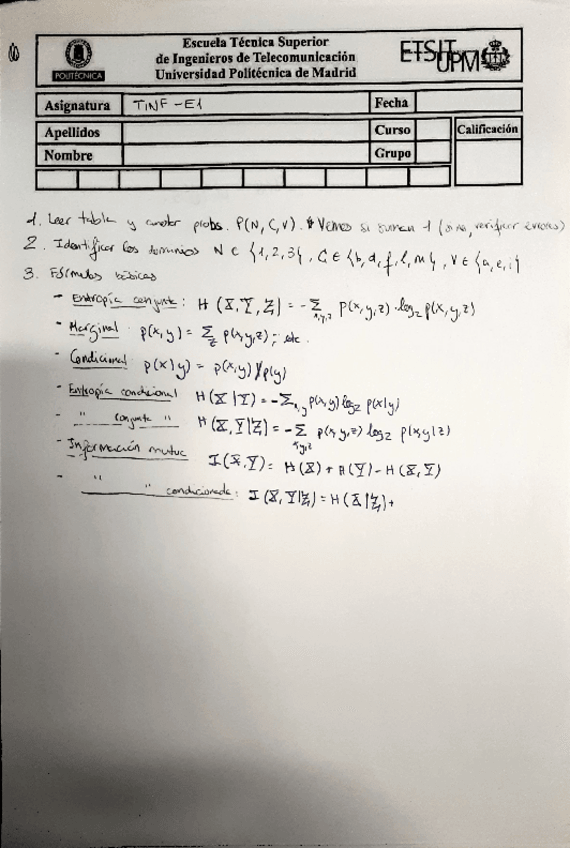 Escuela Técnica Superior
de Ingenieros de Telecomunicación
Universidad Politécnica de Madrid
POLITÉCNICA
ETSIT UPM
Asignatura TINF-E1 Fecha
Apellidos Curso Calificación
Nombre Grupo
1. Leer tabla y anotar probs. P(N,C,V). Vemos si suman 1 (si no, verificar errores)
2. Identificar los dominios N ∈ {1,2,3}, C ∈ {b,d,f,l,m}, V ∈ {a,e,i}
3. Fórmulas básicas
- Entropía conjunta: H(X,Y,Z) = -∑x,y,z p(x,y,z)·log2 p(x,y,z)
- Marginal: p(x,y) = ∑z p(x,y,z); etc.
- Condicional p(x|y) = p(x,y)/p(y)
- Entropía condicional H(X|Y) = -∑x,y p(x,y) log2 p(x|y)
- " conjunta " H(X,Y|Z) = -∑x,y,z p(x,y,z) log2 p(x,y|z)
- Información mutua I(X,Y) = H(X) + H(Y) - H(X,Y)
- " " condicionada: I(X,Y|Z) = H(X|Z) +